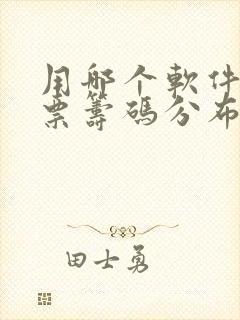 用哪个軟件
票籌碼分布
田士勇